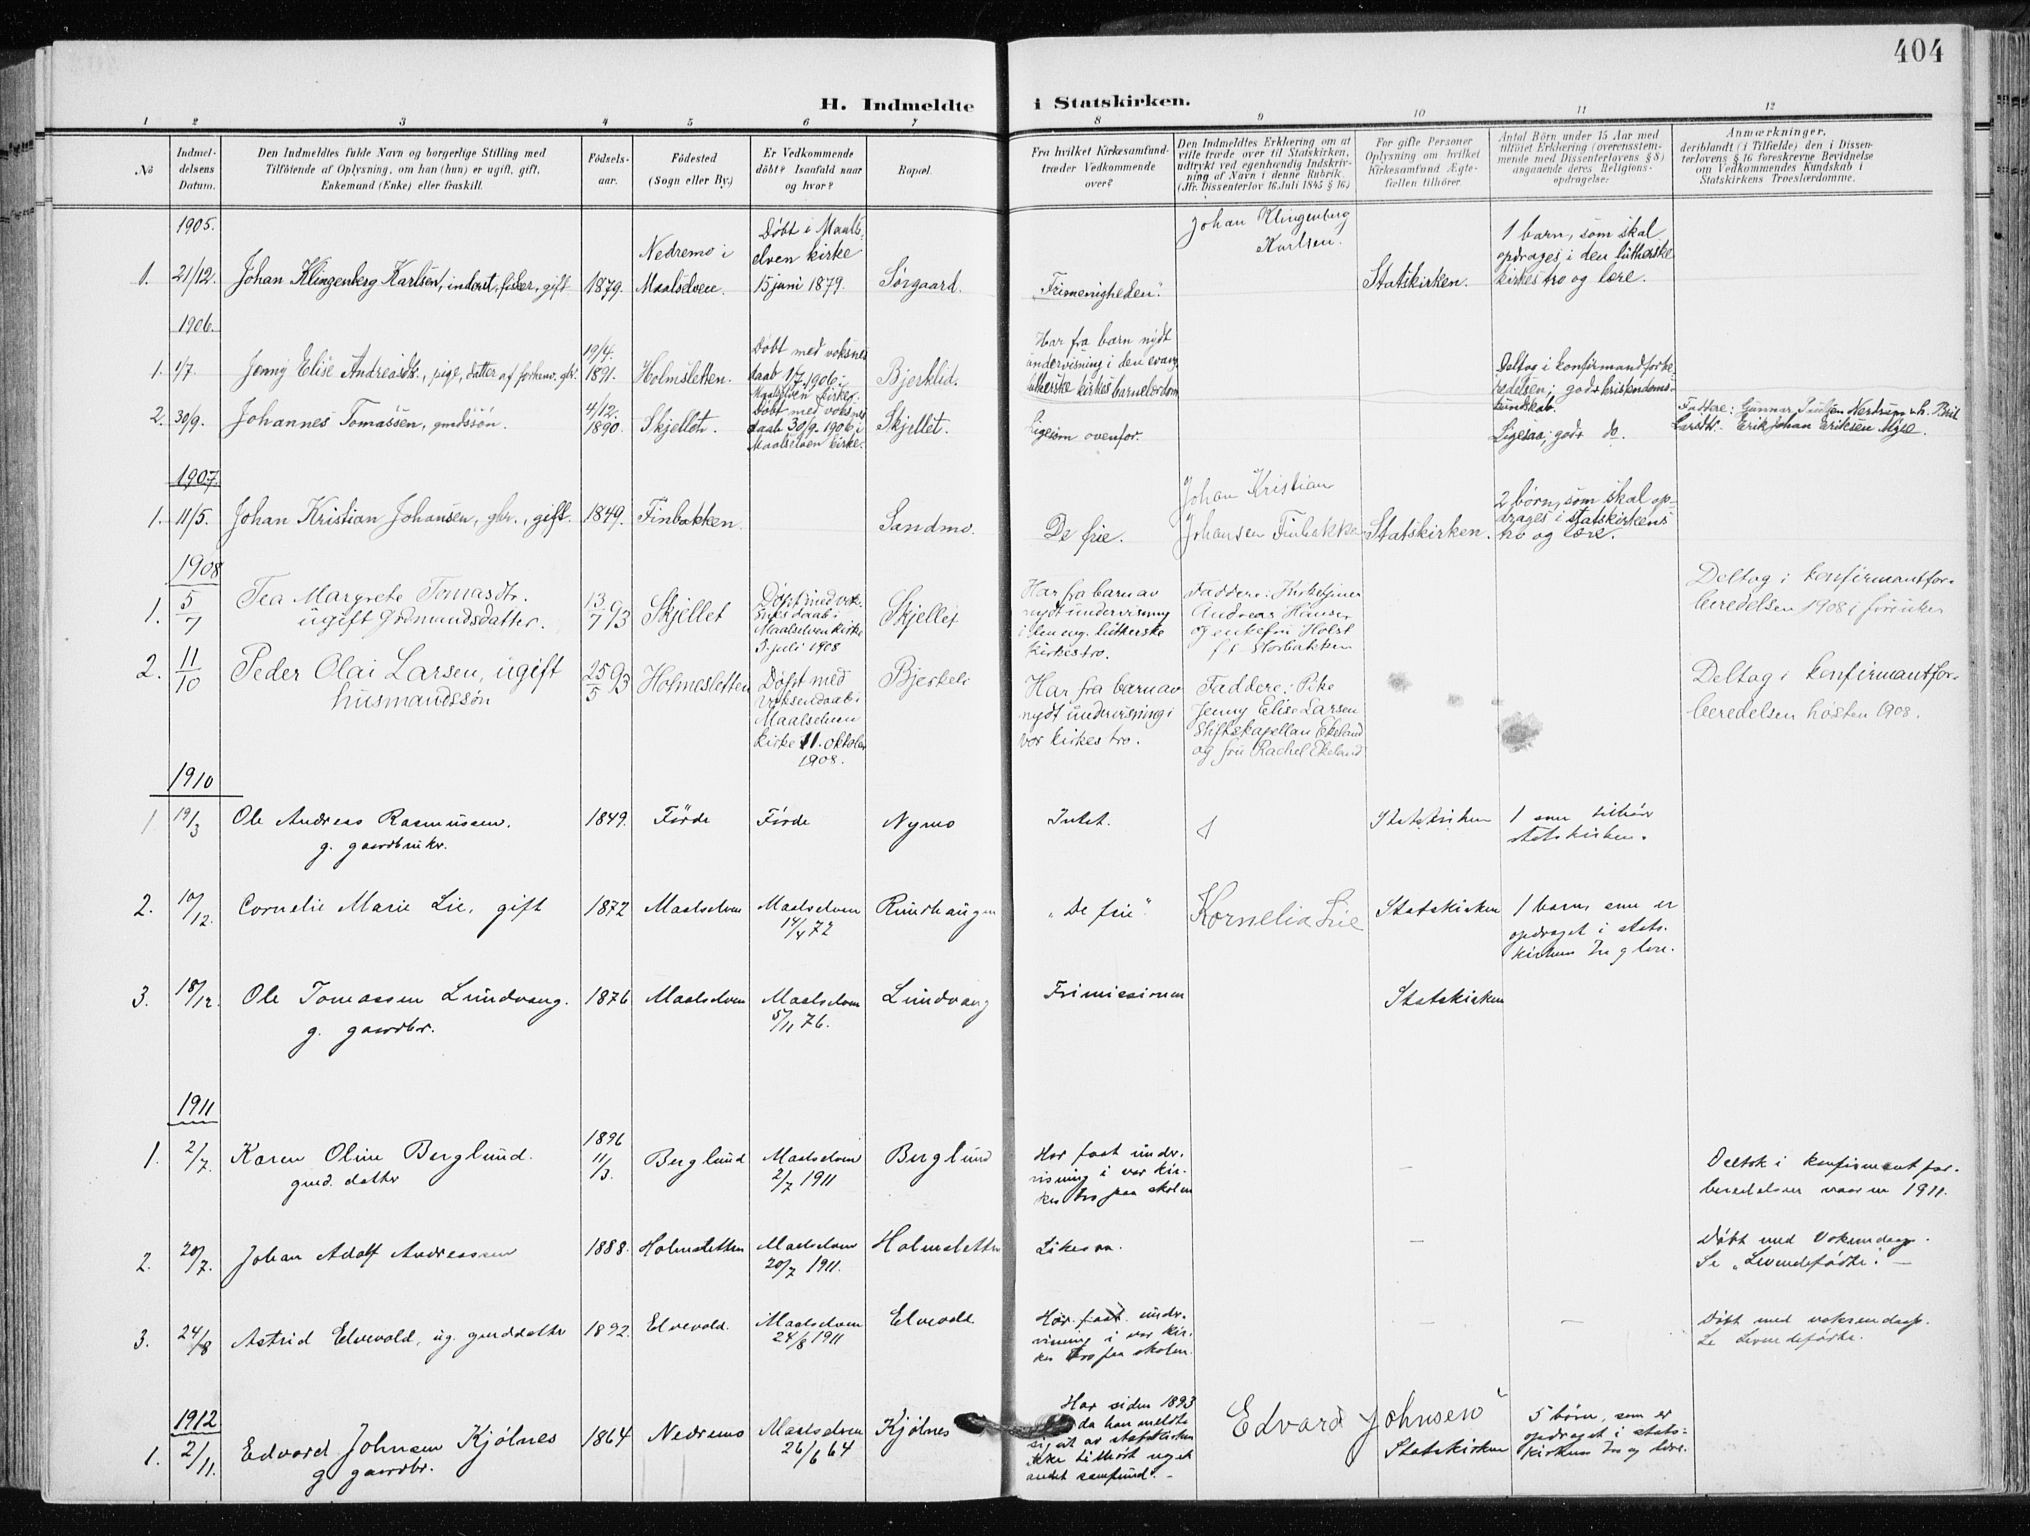 404
H. Indmeldte i Statskirken.
1 2 3 4 5 6 7 8 9 10 11 12
No
Indmel-
delsens
Datum.
Den Indmeldtes fulde Navn og borgerlige Stilling med
Tilföiende af Oplysning, om han (hun) er ugift, gift,
Enkemand (Enke) eller fraskilt.
Födsels-
aar.
Födested
(Sogn eller By.)
Er Vedkommende
döbt? Isaafald naar
og hvor?
Bopæl.
Fra hvilket Kirkesamfund-
træder Vedkommende
over?
Den Indmeldtes Erklæring om at
ville træde over til Statskirken,
udtrykt ved egenhændig Indskriv-
ning af Navn i denne Rubrik.
(Jfr. Dissenterlov 16 Juli 1845 § 16)
For gifte Personer
Oplysning om hvilket
Kirkesamfund Ægte-
fællen tilhörer.
Antal Börn under 15 Aar med
tilföiet Erklæring (overensstem-
mende med Dissenterlovens § 8)
angaaende deres Religions-
opdragelse.
Anmærkninger,
deriblandt (i Tilfælde) den i Dissen-
terlovens § 16 foreskrevne Bevidnelse
om Vedkommendes Kundskab i
Statskirkens Troeslærdomme.
1905.
1. 21/12. Johan Klingenberg Karlsen, inderst, fisker, gift
1879.
Nedremo i
Maalselven.
Døbt i Maals-
elven kirke
15 juni 1879.
Sørgaard.
"Frimenigheden".
Johan Klingenberg
Karlsen.
Statskirken.
1 barn, som skal
opdrages i den lutherske
kirkes tro og lære.
1906.
1. 1/7. Jenny Elise Andreasdt., pige, datter af
19/4.
1891.
Holmsletten.
Døbt med voksnes
daab 1/7 1906 i
Maalselven kirke.
Bjerklid.
Har fra barn nydt
undervisning i den evang.
lutherske kirkes barnelærdom
Deltog i konfirmandforbe-
redelsen; god kristendoms-
kundskab.
2. 30/9. Johannes Tomassen, gmdssøn.
4/12.
1890.
Skjellet.
Døbt med voksnes
daab 30/9 1906 i
Maalselven kirke.
Skjellet.
Ligesom ovenfor.
Ligesaa; god do.
Faddere: Gunnar
Larsdt. Erik Johan Eriksen Myre.
1907.
1. 11/5. Johan Kristian Johansen, gbr., gift.
1849.
Finbakken.
Sandmo.
De frie.
Johan Kristian
Johansen Finbakken
Statskirken.
2 børn, som skal op-
drages i statskirkens
tro og lære.
1908
1. 5/7 Tea Margrete Tomasdtr.
ugift Gårdmandsdatter.
13/7 93
Skjellet
Døpt med vok-
snes daab i
Maalselven kirke
5. juli 1908
Skjellet
Har fra barn av
nydt undervisning
i den evg. lutherske
kirkes tro.
Faddere: Kirketjener
Andreas Hansen
og enkefru Holst
f. Storbakken
Deltog i konfirmantfor-
beredelsen 1908 i
2. 11/10 Peder Olai Larsen, ugift
husmandssøn
25/5 93
Holmesletten
Døpt med
voksendaab i
Maalselven
kirke 11. oktober
1908.
Bjerkeli
Har fra barn av
nydt undervisning i
vor kirkes tro.
Faddere: Pike
Jenny Elise Larsen
Stiftskapellan Ekeland
og fru Rachel Ekeland
Deltog i konfirmantfor-
beredelsen høsten 1908.
1910
1 19/3 Ole Andreas Rasmussen.
g. gaardbruker.
1849.
Førde
Førde
Nymo
Intet.
Statskirken
1 som tilhører
statskirken.
2. 10/12. Cornelie Marie Lie, gift
1872
Maalselven
Maalselven
14/4 72
Rundhaugen
"De frie".
Kornelia Lie
Statskirken
1 barn, som er
opdraget i stats-
kirkens tro og lære.
3. 18/12. Ole Tomassen Lundvang.
g. gaardbr.
1876
Maalselven
Maalselven
5/11 76.
Lundvang
Frimissionen
Statskirken
1911
1. 2/7. Karen Oline Berglund.
gmd. datter
1896
11/3.
Berglund
Maalselven
2/7 1911
Berglund
Har faat under-
visning i vor kir-
kes tro paa skolen
-
Deltok i konfirmantfor-
beredelsen vaaren 1911.
2. 20/7. Johan Adolf Andreassen
1888.
Holmsletten
Maalselven
20/7 1911.
Holmsletten
Likesaa.
-
Døbt med voksendaap.
Se "Levendefødte". -
3. 24/8 Astrid Elvevold, ug. gmddatter
1892.
Elvevold.
Maalselven
24/8 1911
Elvevold
Har faat under-
visning i vor kir-
kes tro paa skolen.
-
Døbt med voksendaap.
Se Levendefødte.
1912
1. 2/11. Edvard Johnsen Kjølnes
g gaardbr.
1864
Nedremo
Maalselven
26/6 64
Kjølnes
Har siden 1893
da han meldte
sig ut av statskirken
ikke tilhørt noget
andet samfund. -
Edvard Johnsen
Statskirken
5 børn, som er
opdraget i stats-
kirkens tro og lære.